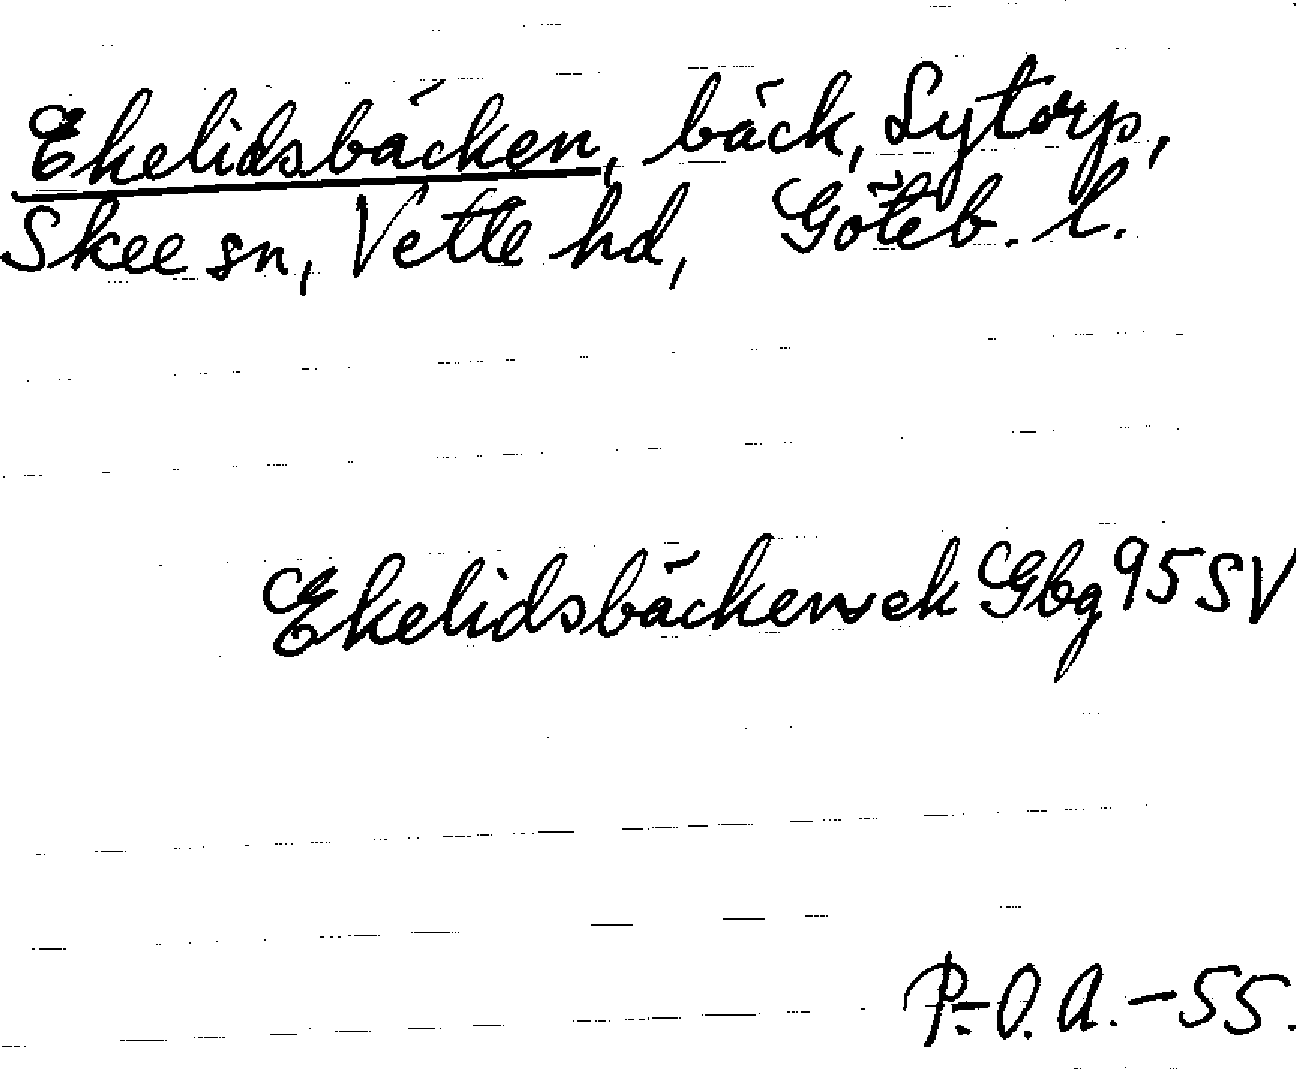 Ekelidsbäcken, bäck, Lytorp,
Skee sn, Vette hd, Göteb. l.
Ekelidsbäcken ek Gbg 95 SV
P.-O. A. - 55.